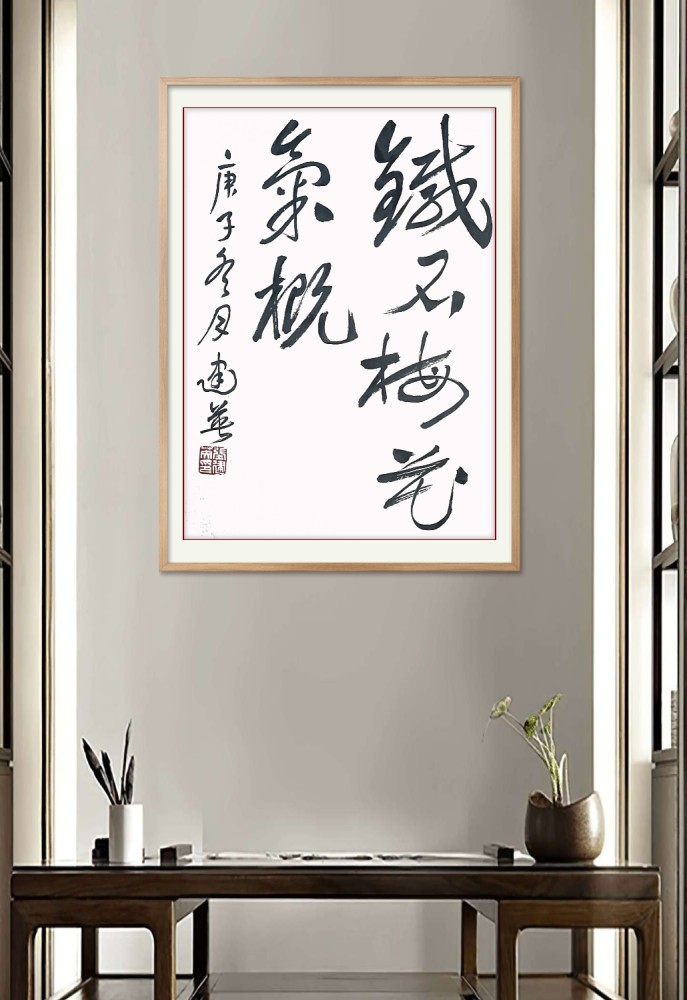 鐵石梅花
氣概
庚子冬月建英